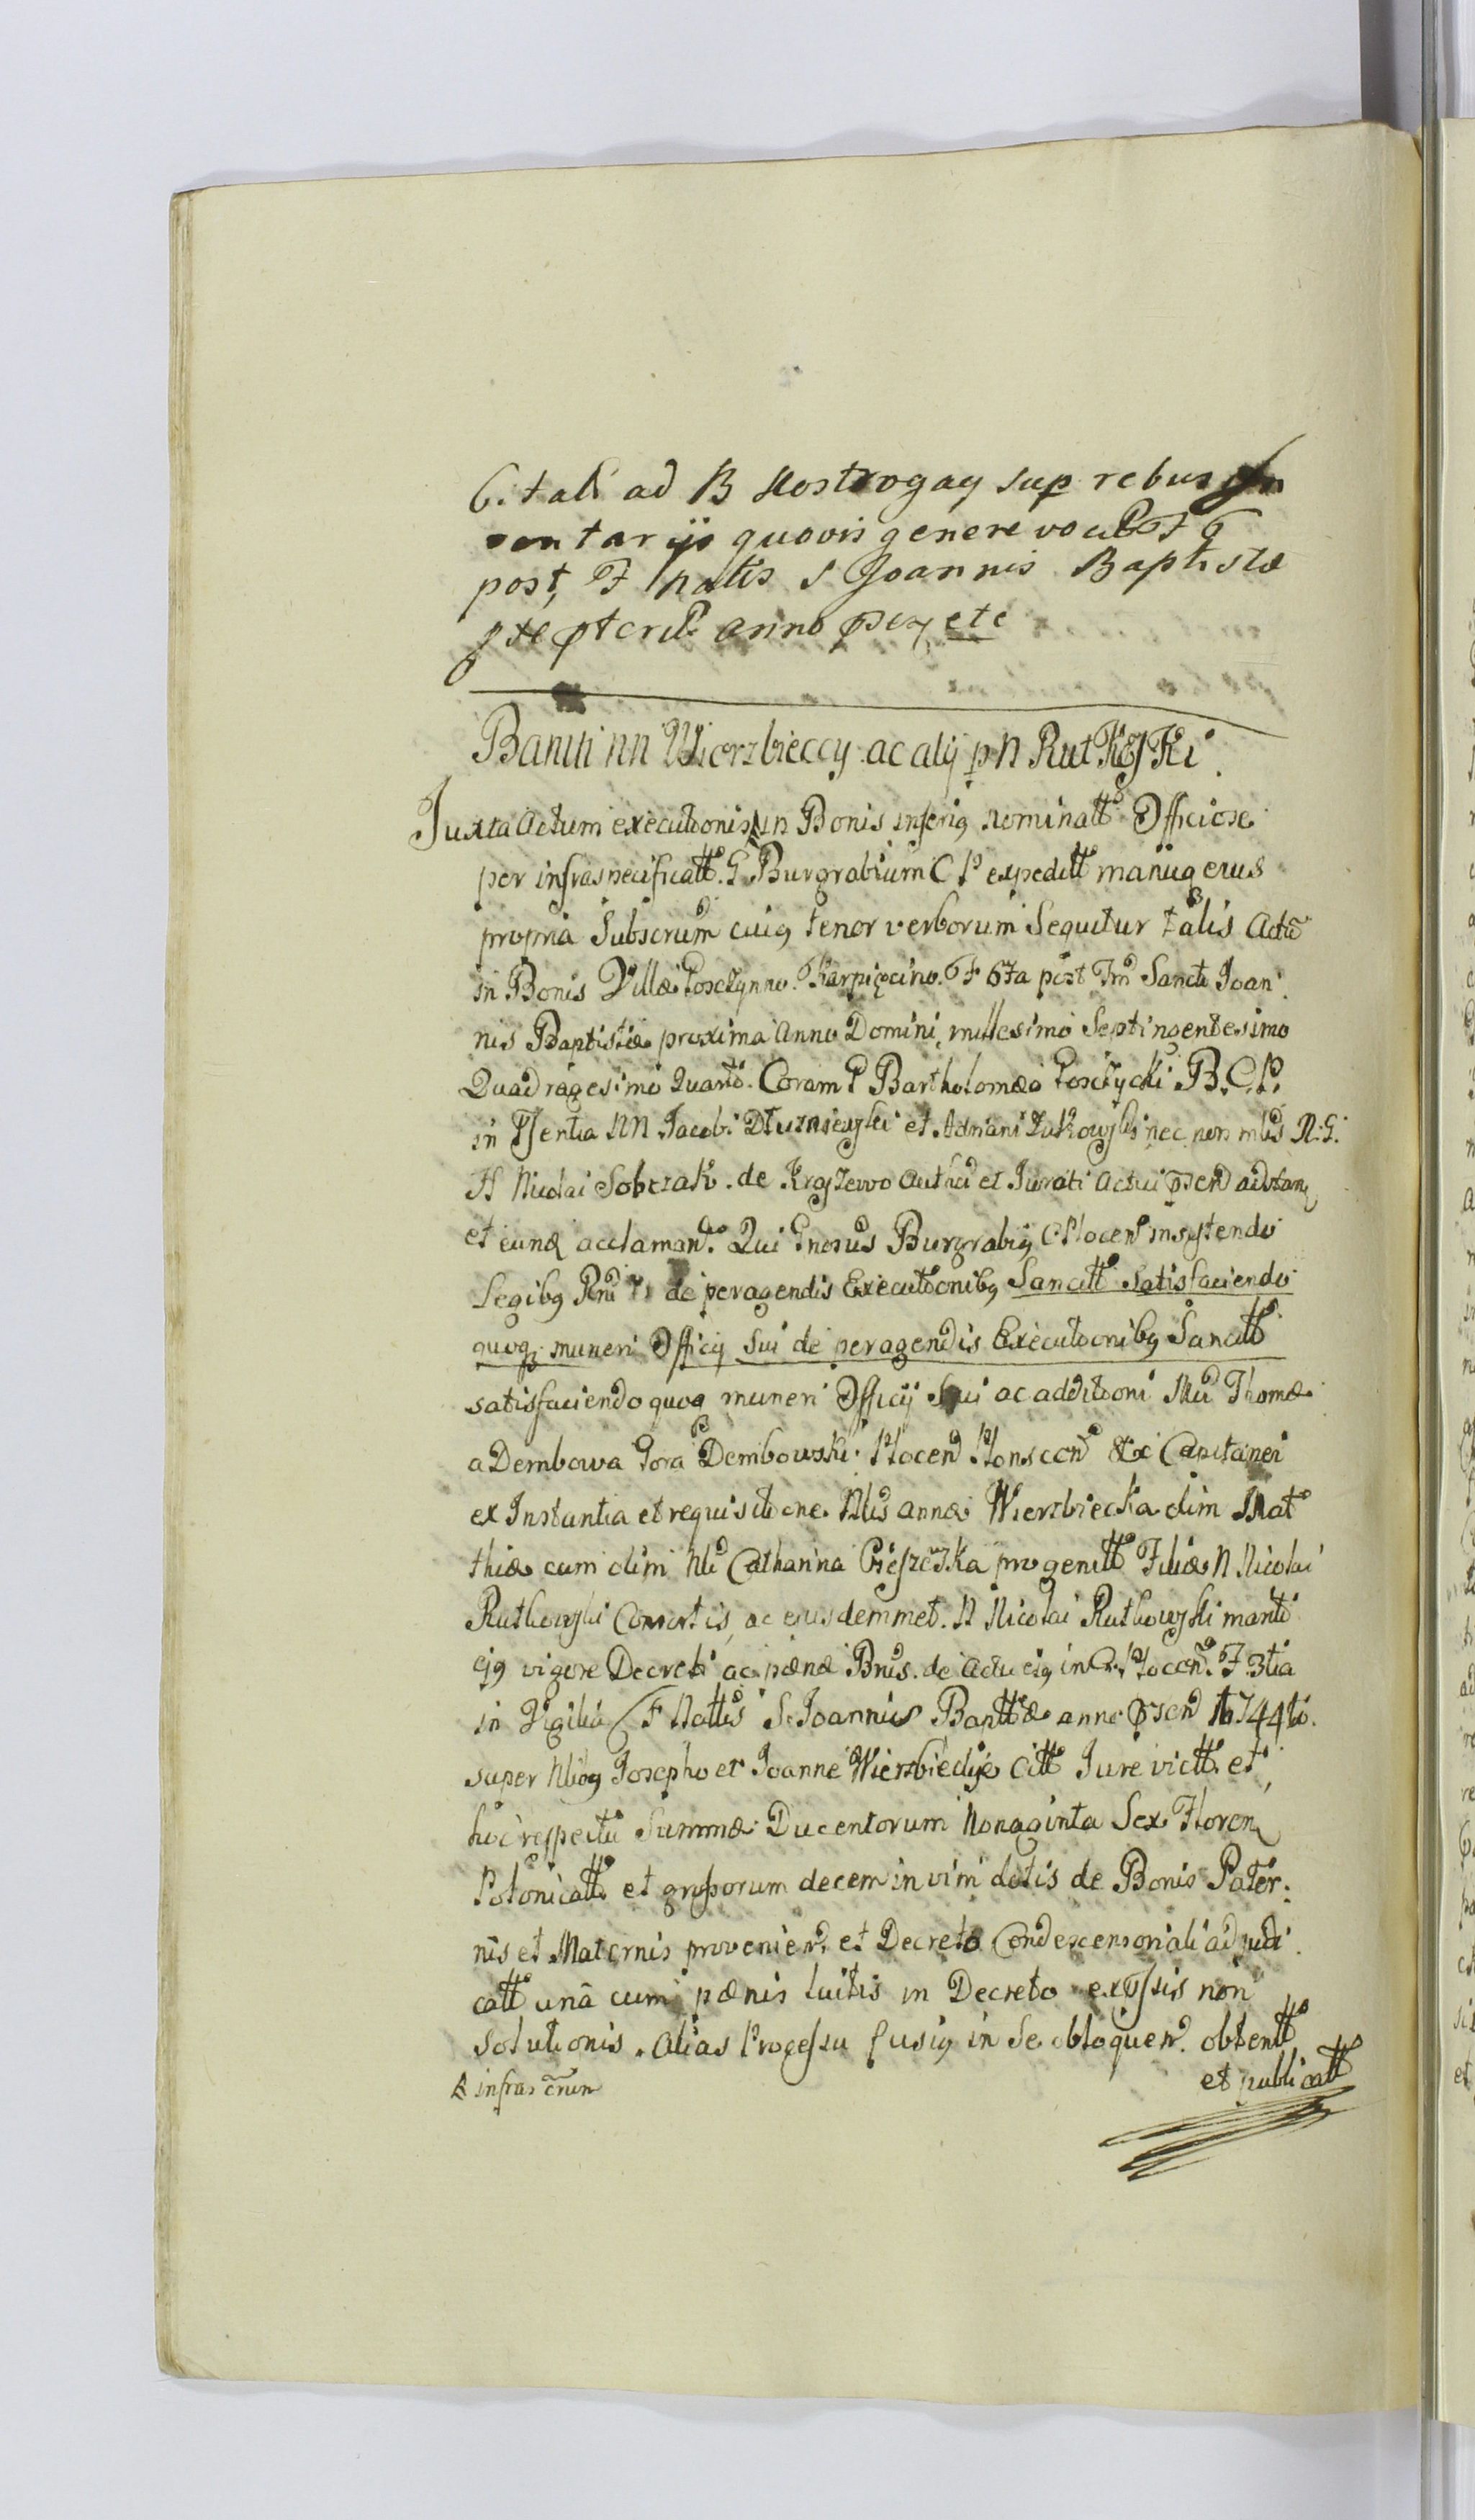 C. tali ad B Mostrogay sup rebus In
ventarijs quovis genere vocat F 6
post, F natis S Joannis Baptistæ
præpterit anno præz etc
Baniti NN Wierzbieccy ac alij p N RutKoſKi.
Juxta Actum executionis in Bonis inferiq nominatt Officiose
per infraspecificatt. G Burgrabium C P expeditt manuq eius
propria Subscrum cuiq tenor verborum Sequitur talis Actu
in Bonis Villæ Goscÿnno. Karpięcino. F 6ta post Fm Sancti Joan
nis Baptistæ proxima Anno Domini millesimo Septingentesimo
Quadragesimo Quarto. Coram G Bartholomæo Goscÿcki B. C. P.
in Pſentia NN Jacobi Dłuzniewſki et Adriani Zukowſki nec non mlis N. G.
H Nicolai Sobczak. de Kraſzewo Authci et Jurati Actui præsend adstan
et eund acclaman. Qui Gnosus Burgrabiq C Plocen insystendo
Legibq Rni de peragendis Executionibq Sancitt Satisfaciendo
quoq. muneri Officij Sui de peragendis Executionibq Sancitt
satisfaciendo quoq muneri Officij Sui ac additioni Md Thomæ
a Dembowa Gora Dembowski. Plocen Plonscen &c Capitanei
ex Instantia et requisitione. Nlis annæ Wierzbiecka olim Mat
thiæ cum olim Nli Catharina Cieſzeſka progenitt Filiæ N Nicolai
Rutkowſki Consortis, ac eiusdemmet. N Nicolai Rutkowſki mariti
ejq vigore Decreti ac pænæ Bnis. de Actu eiq in C. Plocen. F 3tia
in Vigilia F Nattis S. Joannis Bapttæ anno Præsend 1744to.
super Nlibq Josepho et Joanne Wierzbieckie Citt Jure victt. et,
hoc respectu Summæ Ducentorum Nonaginta Sex Floren
Polonicatt et groſsorum decem in vim dotis de Bonis Pater:
nis et Maternis provenien. et Decreto Condescensoriali adjudi
catt unâ cum pænis luitis in Decreto exPſsis non
solutionis. Alias Proceſsu fusiq in Se obloquen. obtentt
et publicatt
& infras crum